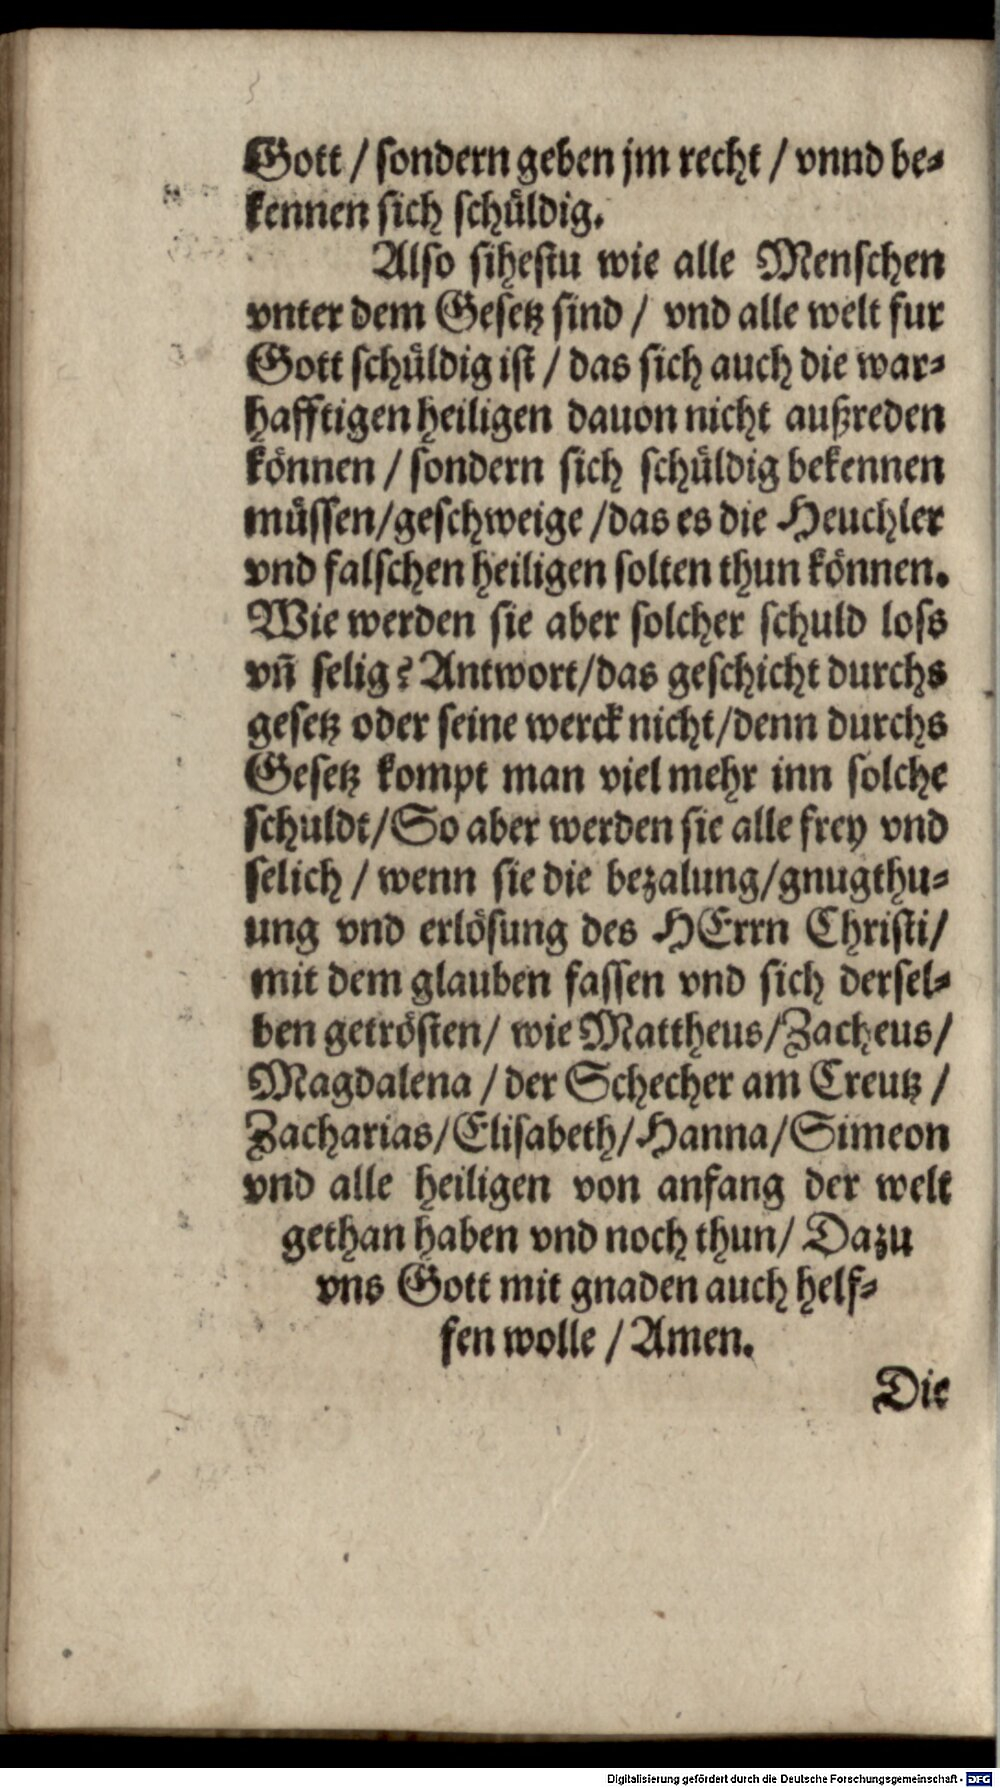 Gott / sondern geben jm recht / vnnd be-
kennen sich schüldig.
Also sihestu wie alle Menschen
vnter dem Gesetz sind / vnd alle welt fur
Gott schüldig ist / das sich auch die war-
hafftigen heiligen dauon nicht außreden
können / sondern sich schüldig bekennen
müssen/geschweige /das es die Heuchler
vnd falschen heiligen solten thun können.
Wie werden sie aber solcher schuld loss
vñ selig? Antwort/das geschicht durchs
gesetz oder seine werck nicht/denn durchs
Gesetz kompt man viel mehr inn solche
schuldt/So aber werden sie alle frey vnd
selich / wenn sie die bezalung/gnugthu-
ung vnd erlösung des HErrn Christi/
mit dem glauben fassen vnd sich dersel-
ben getrösten/ wie Mattheus/Zacheus/
Magdalena / der Schecher am Creutz /
Zacharias/Elisabeth/Hanna/Simeon
vnd alle heiligen von anfang der welt
gethan haben vnd noch thun/ Dazu
vns Gott mit gnaden auch helf-
fen wolle / Amen.
Die
Digitalisierung gefördert durch die Deutsche Forschungsgemeinschaft - DFG